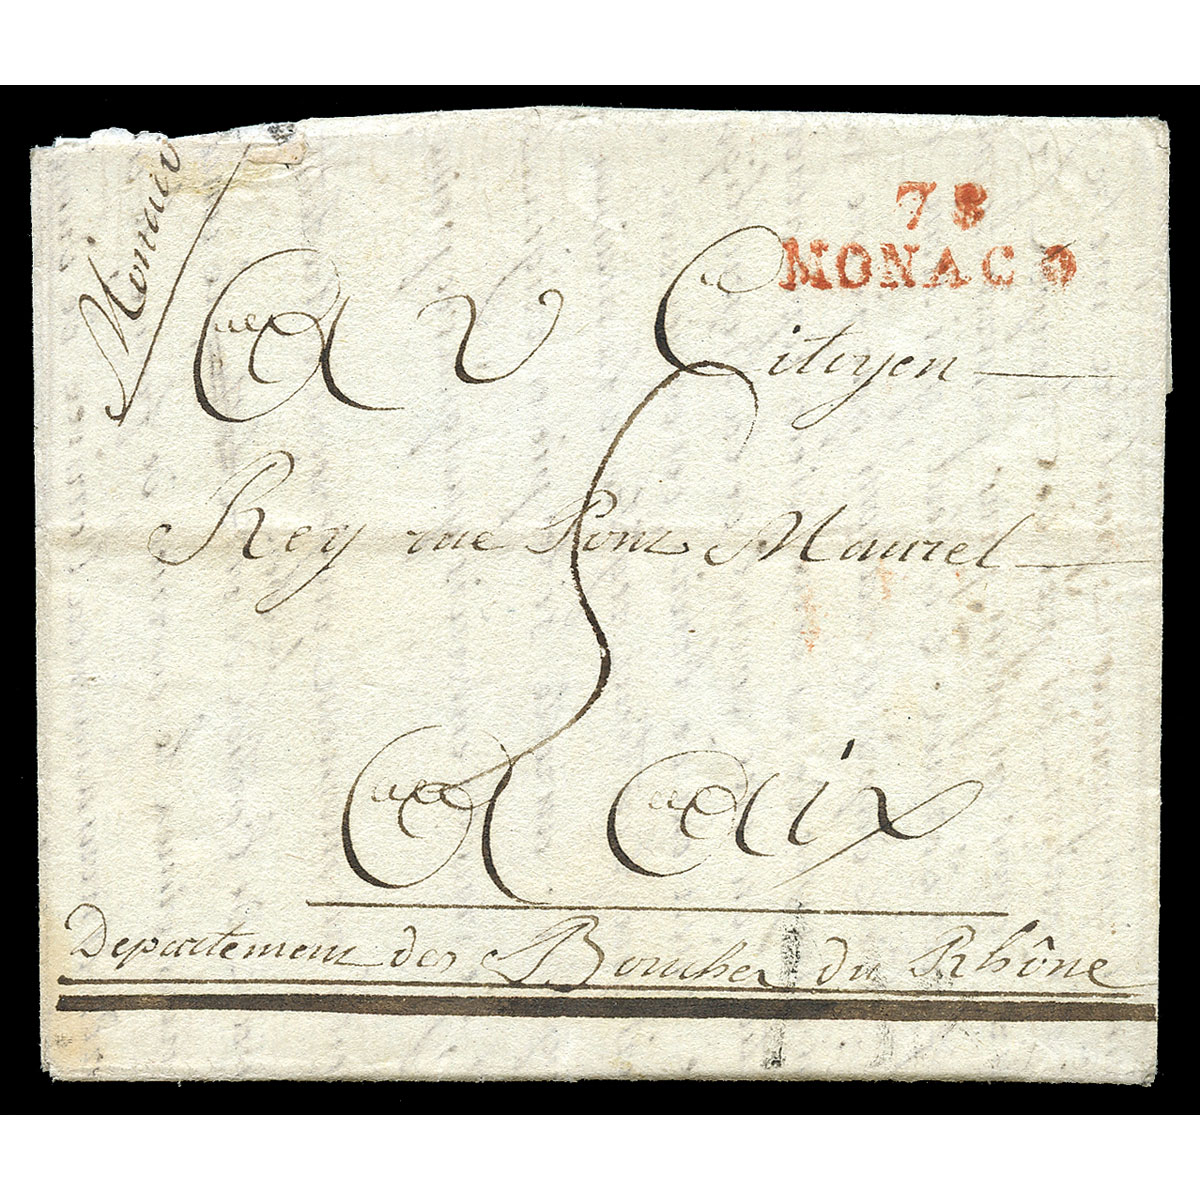 78
MONACO
Au Citoyen
Rey rue Pont Maurel
5
A Aix
Departement des Bouches du Rhône